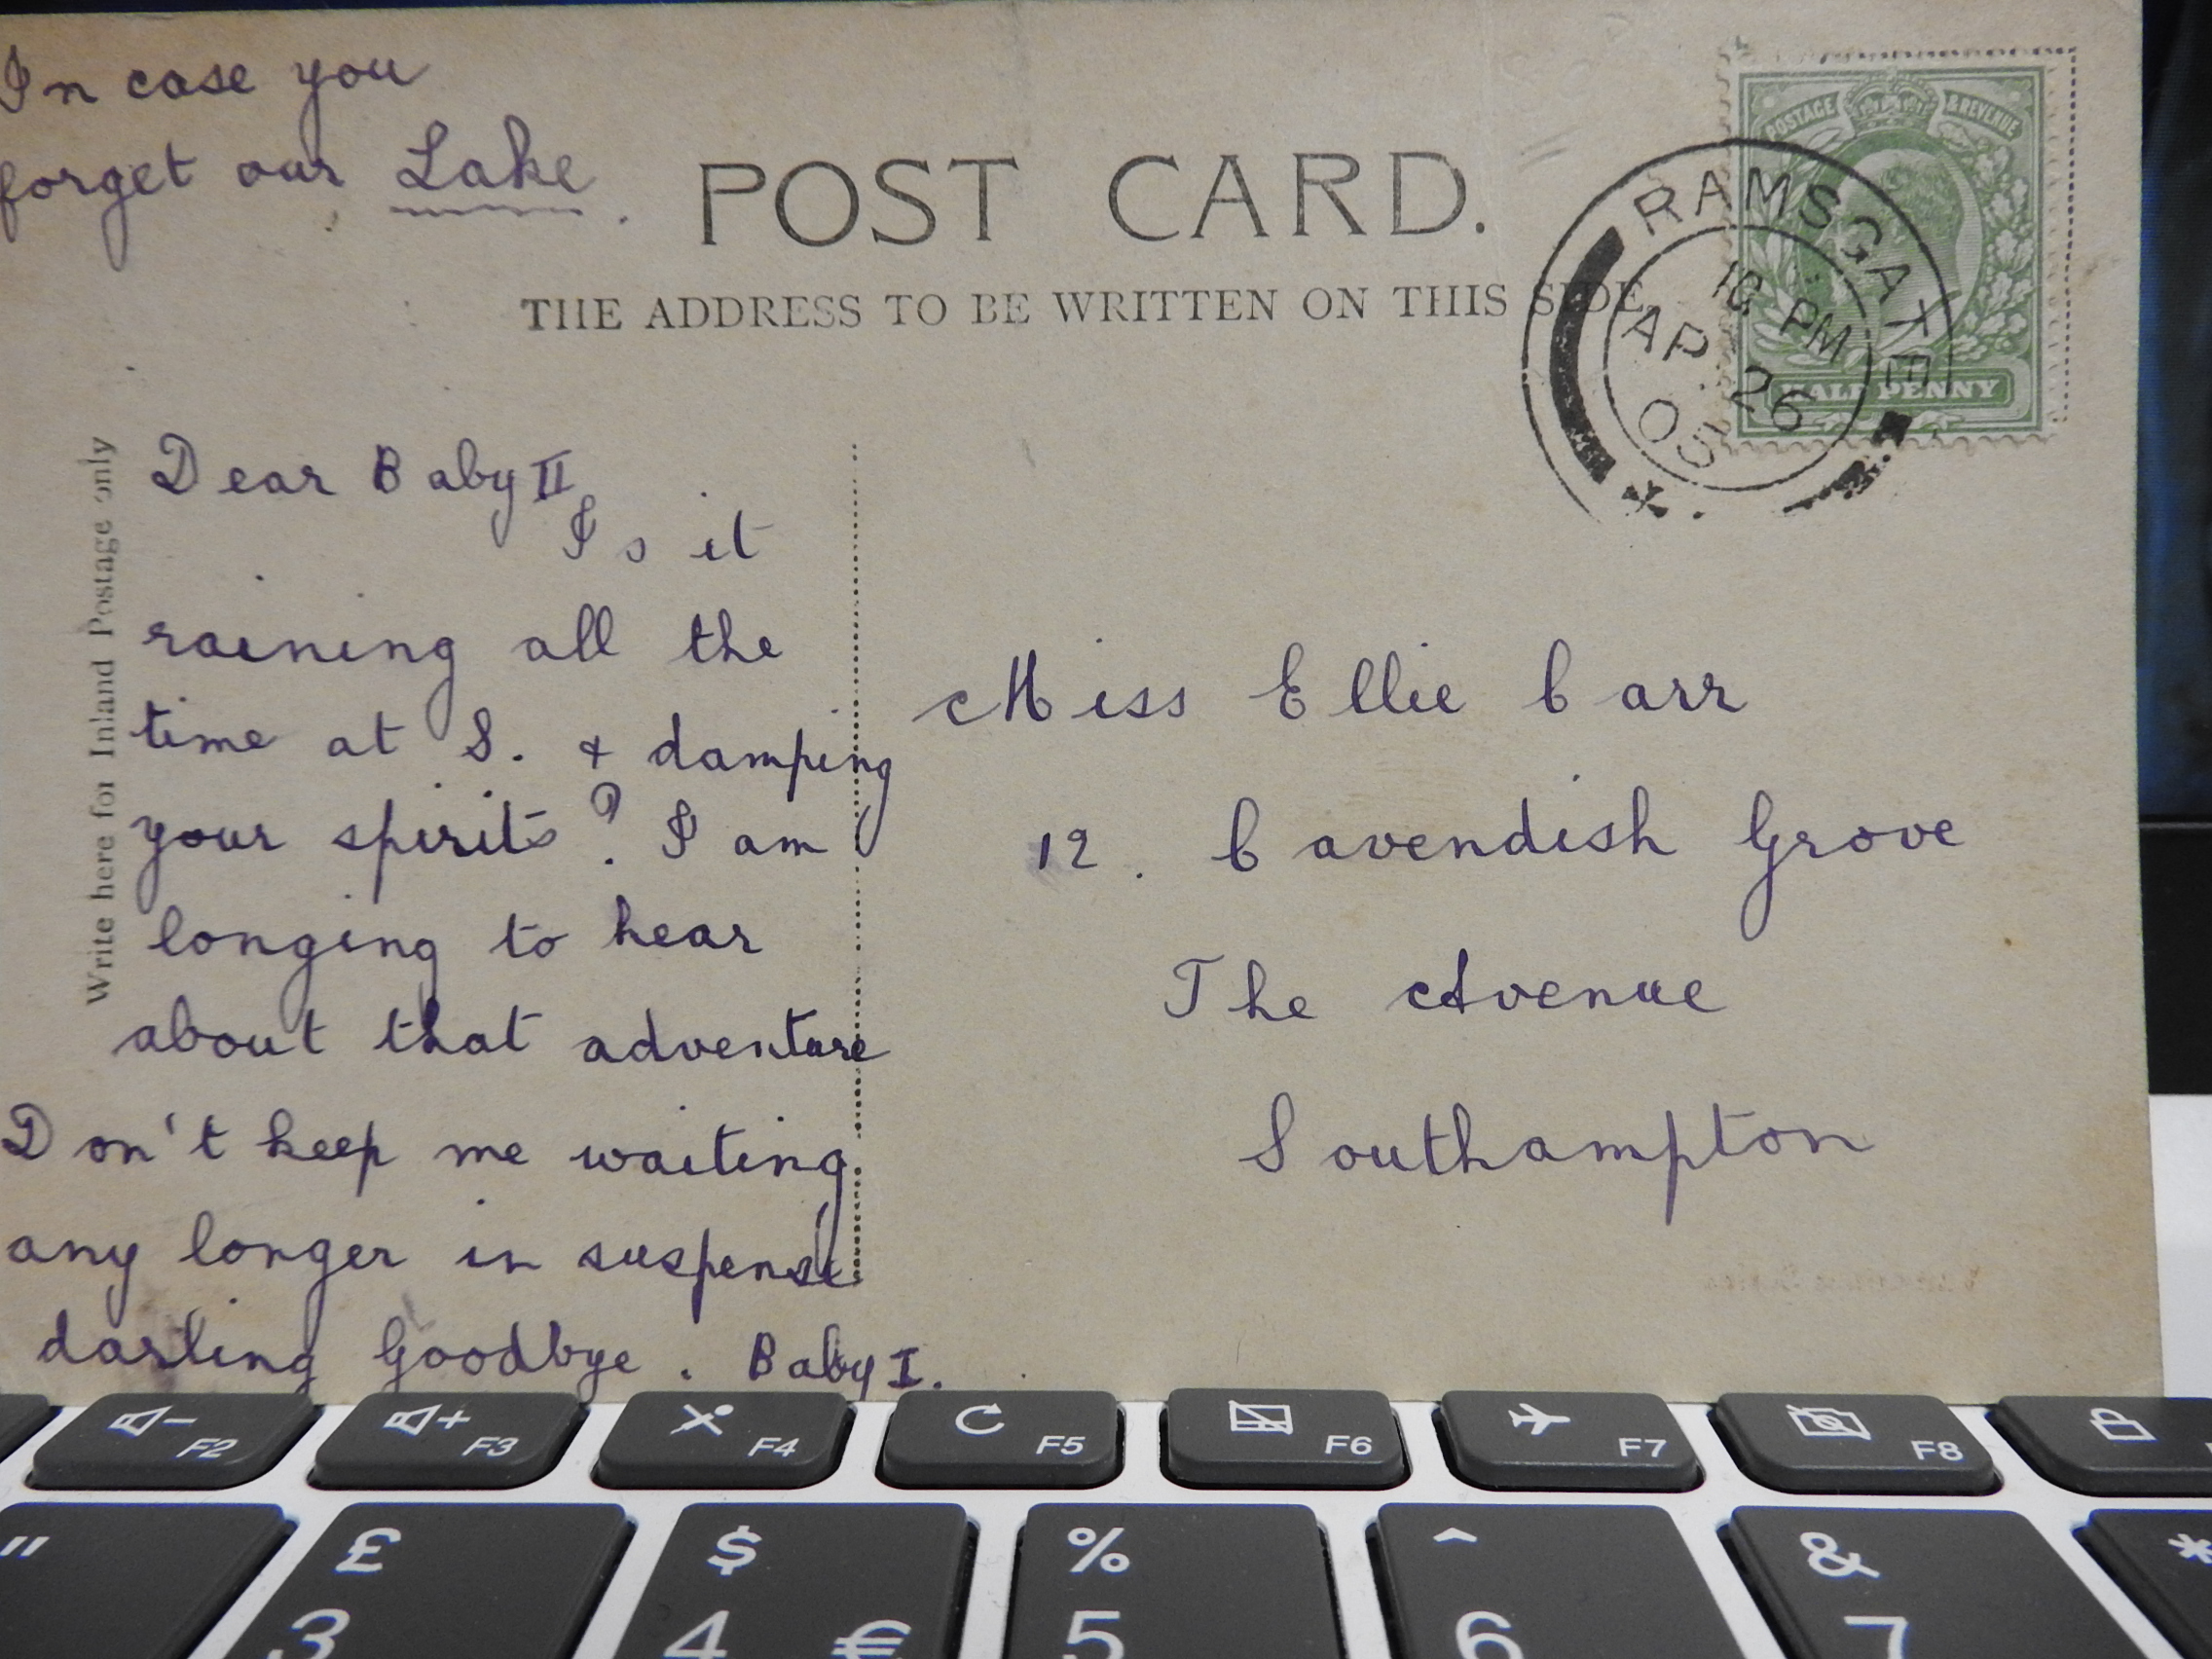 In case you
forget our Lake.
POST CARD.
THE ADDRESS TO BE WRITTEN ON THIS SIDE
POSTAGE & REVENUE
HALF PENNY
RAMSGATE
10 PM
AP 26
05
Write here for Inland Postage only
Dear Baby II
Is it
raining all the
time at S. + damping
your spirits? I am
longing to hear
about that adventure
Don't keep me waiting
any longer in suspense
darling Goodbye. Baby I.
Miss Ellie Carr
12. Cavendish Grove
The Avenue
Southampton
F2
F3
F4
F5
F6
F7
F8
"
£
3
$
4 €
%
5
^
6
&
7
*